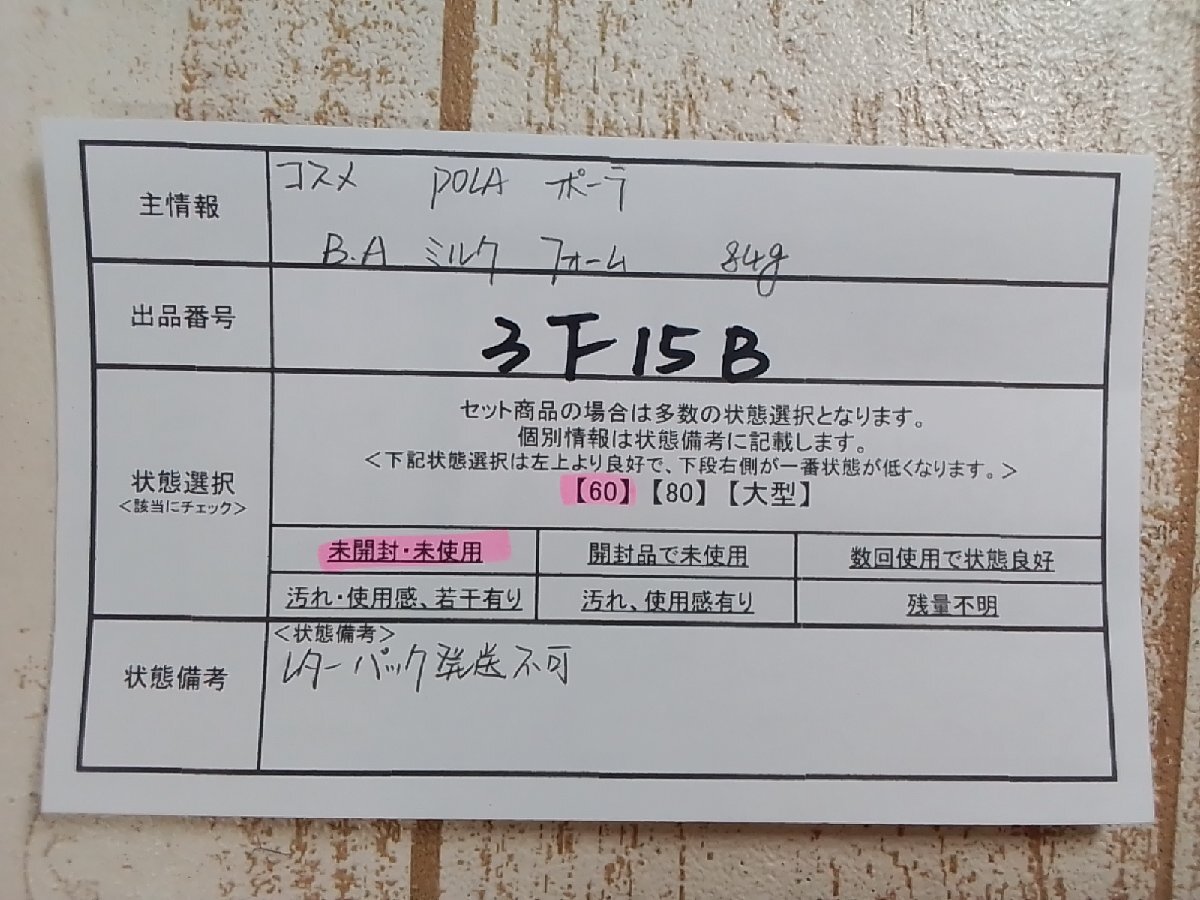 主情報
コスメ POLA ポーラ
B.A ミルク フォーム 84g
出品番号
3F15B
状態選択
<該当にチェック>
セット商品の場合は多数の状態選択となります。
個別情報は状態備考に記載します。
<下記状態選択は左上より良好で、下段右側が一番状態が低くなります。>
【60】【80】【大型】
未開封・未使用 開封品で未使用 数回使用で状態良好
汚れ・使用感、若干有り 汚れ、使用感有り 残量不明
状態備考
<状態備考>
レターパック発送不可